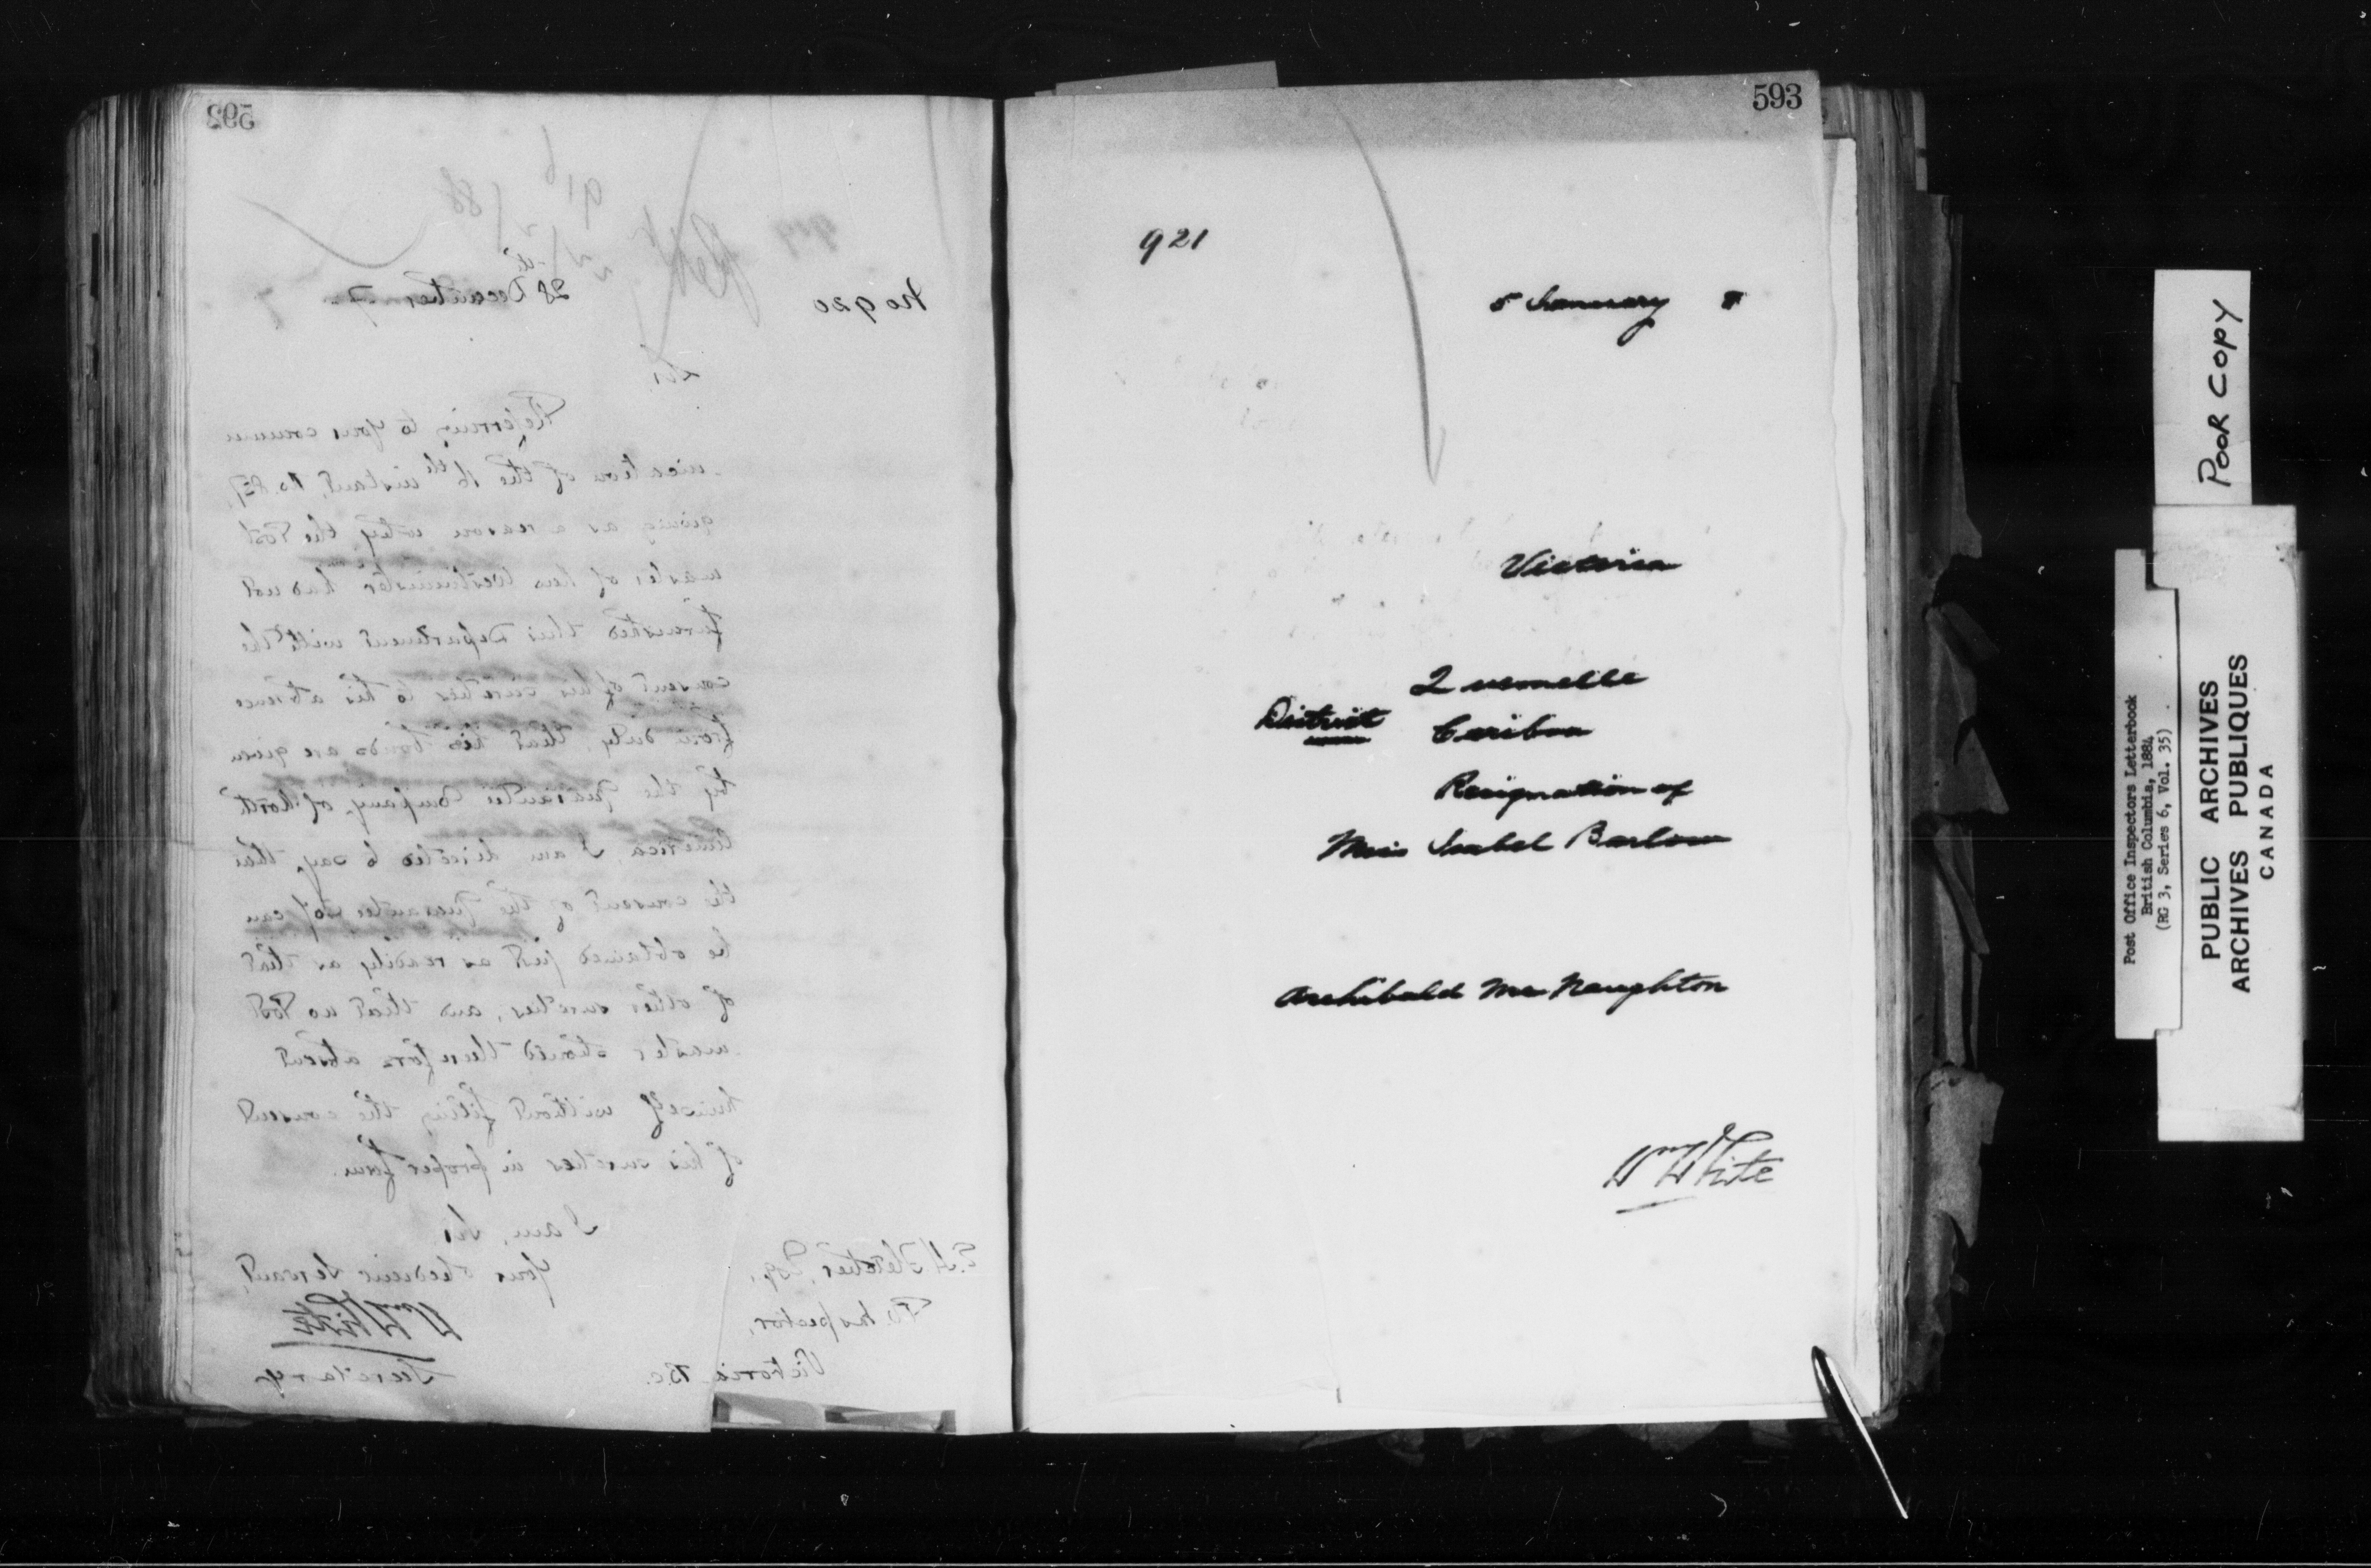 592
No 920
28th December 7
Sir,
Referring to your commu
-nication of the 16th instant, No.
giving as a reason why the Post
master of New Westminster had not
furnished this Department with the
consent of his sureties to his absence
from duty, that his bonds are given
by the Guarantee Company of North
America, I am directed to say that
the consent of the Guarantee Coy can
be obtained just as readily as that
of other sureties, and that no Post
-master should therefore absent
himself without filing the consent
of his sureties in proper form.
I am, Sir,
Your obedient Servant,
Wm White
Secretary
E.H. Fletcher, Esq.,
P.O. Inspector,
Victoria B.C.
593
921
5 January 8
Victoria
Quesnelle
District Cariboo
Resignation of
Miss Isabel Barlow
Archibald McNaughton
Wm White
POOR COPY
Post Office Inspectors Letterbook
British Columbia, 1884
(RG 3, Series 6, Vol. 35)
PUBLIC ARCHIVES
ARCHIVES PUBLIQUES
CANADA